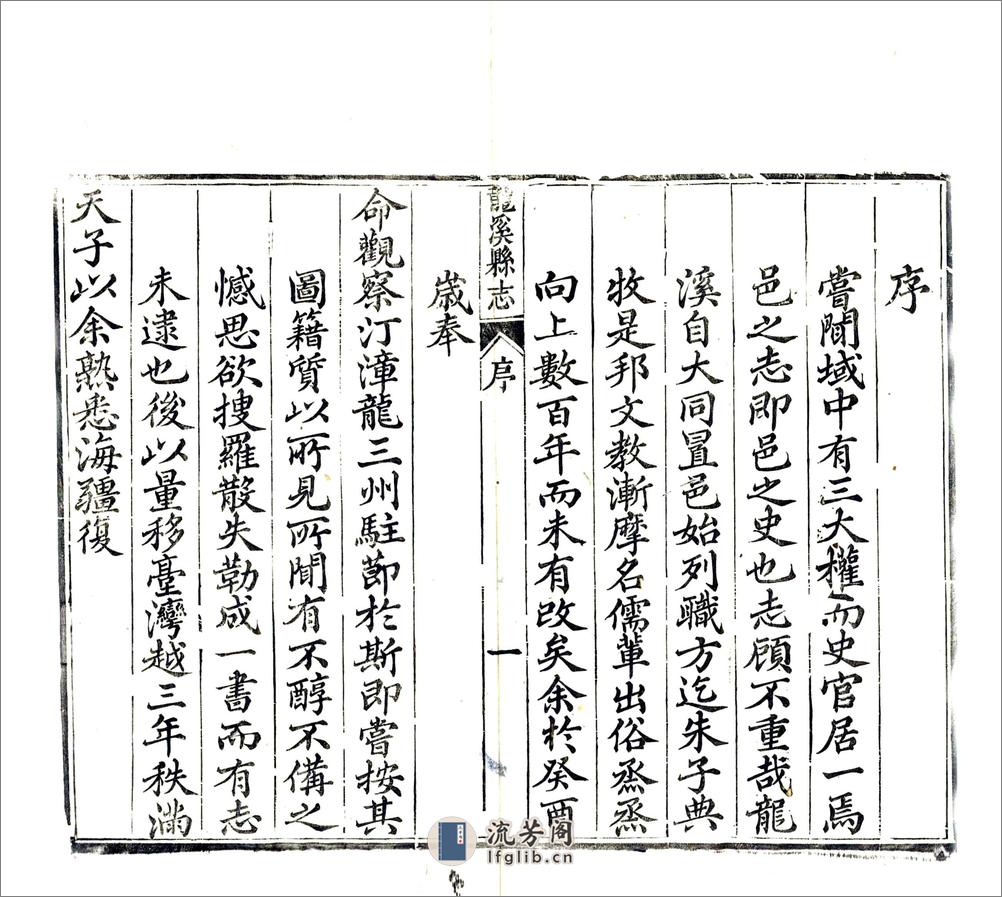 序
嘗聞域中有三大權而史官居一焉
邑之志即邑之史也志顧不重哉龍
溪自大同置邑始列職方迄朱子典
牧是邦文教漸摩名儒輩出俗烝烝
向上數百年而未有改矣余於癸酉
歲奉
龍溪縣志
序
一
命觀察汀漳龍三州駐節於斯即嘗按其
圖籍質以所見所聞有不醇不備之
憾思欲搜羅散失勒成一書而有志
未逮也後以量移臺灣越三年秩滿
天子以余熟悉海疆復
流芳阁
lfglib.cn